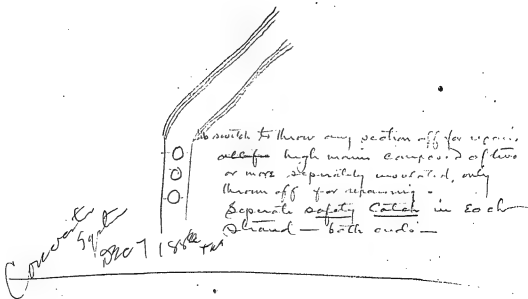 switch to throw any section off for repairs
high mains composed of two
or more separately insulated, only
thrown off for repairing.
Separate safety Catch in Each
Strand — both ends —